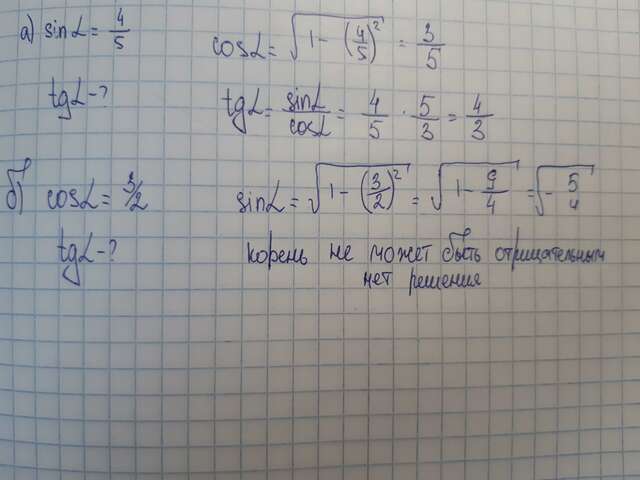 а) sinα = 4/5 cosα = √(1 - (4/5)²) = 3/5
tgα - ? tgα = sinα/cosα = 4/5 · 5/3 = 4/3
б) cosα = 3/2 sinα = √(1 - (3/2)²) = √(1 - 9/4) = √(- 5/4)
tgα - ? корень не может быть отрицательным
нет решения